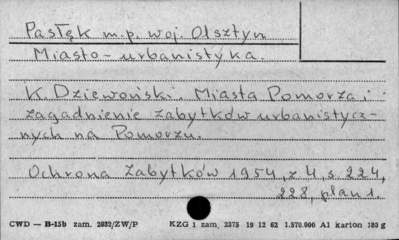 Pasłęk m.p. woj. Olsztyn
Miasto - urbanistyka.
K. Dziewoński. Miasta Pomorza i
zagadnienie zabytków urbanistycz-
nych na Pomorzu.
Ochrona Zabytków 1954, z 4, s. 224,
228, plan 1.
CWD — B-15b zam. 2032/ZW/P KZG 1 zam, 2375 19 12 62 1.570.000 A1 karton 180 g